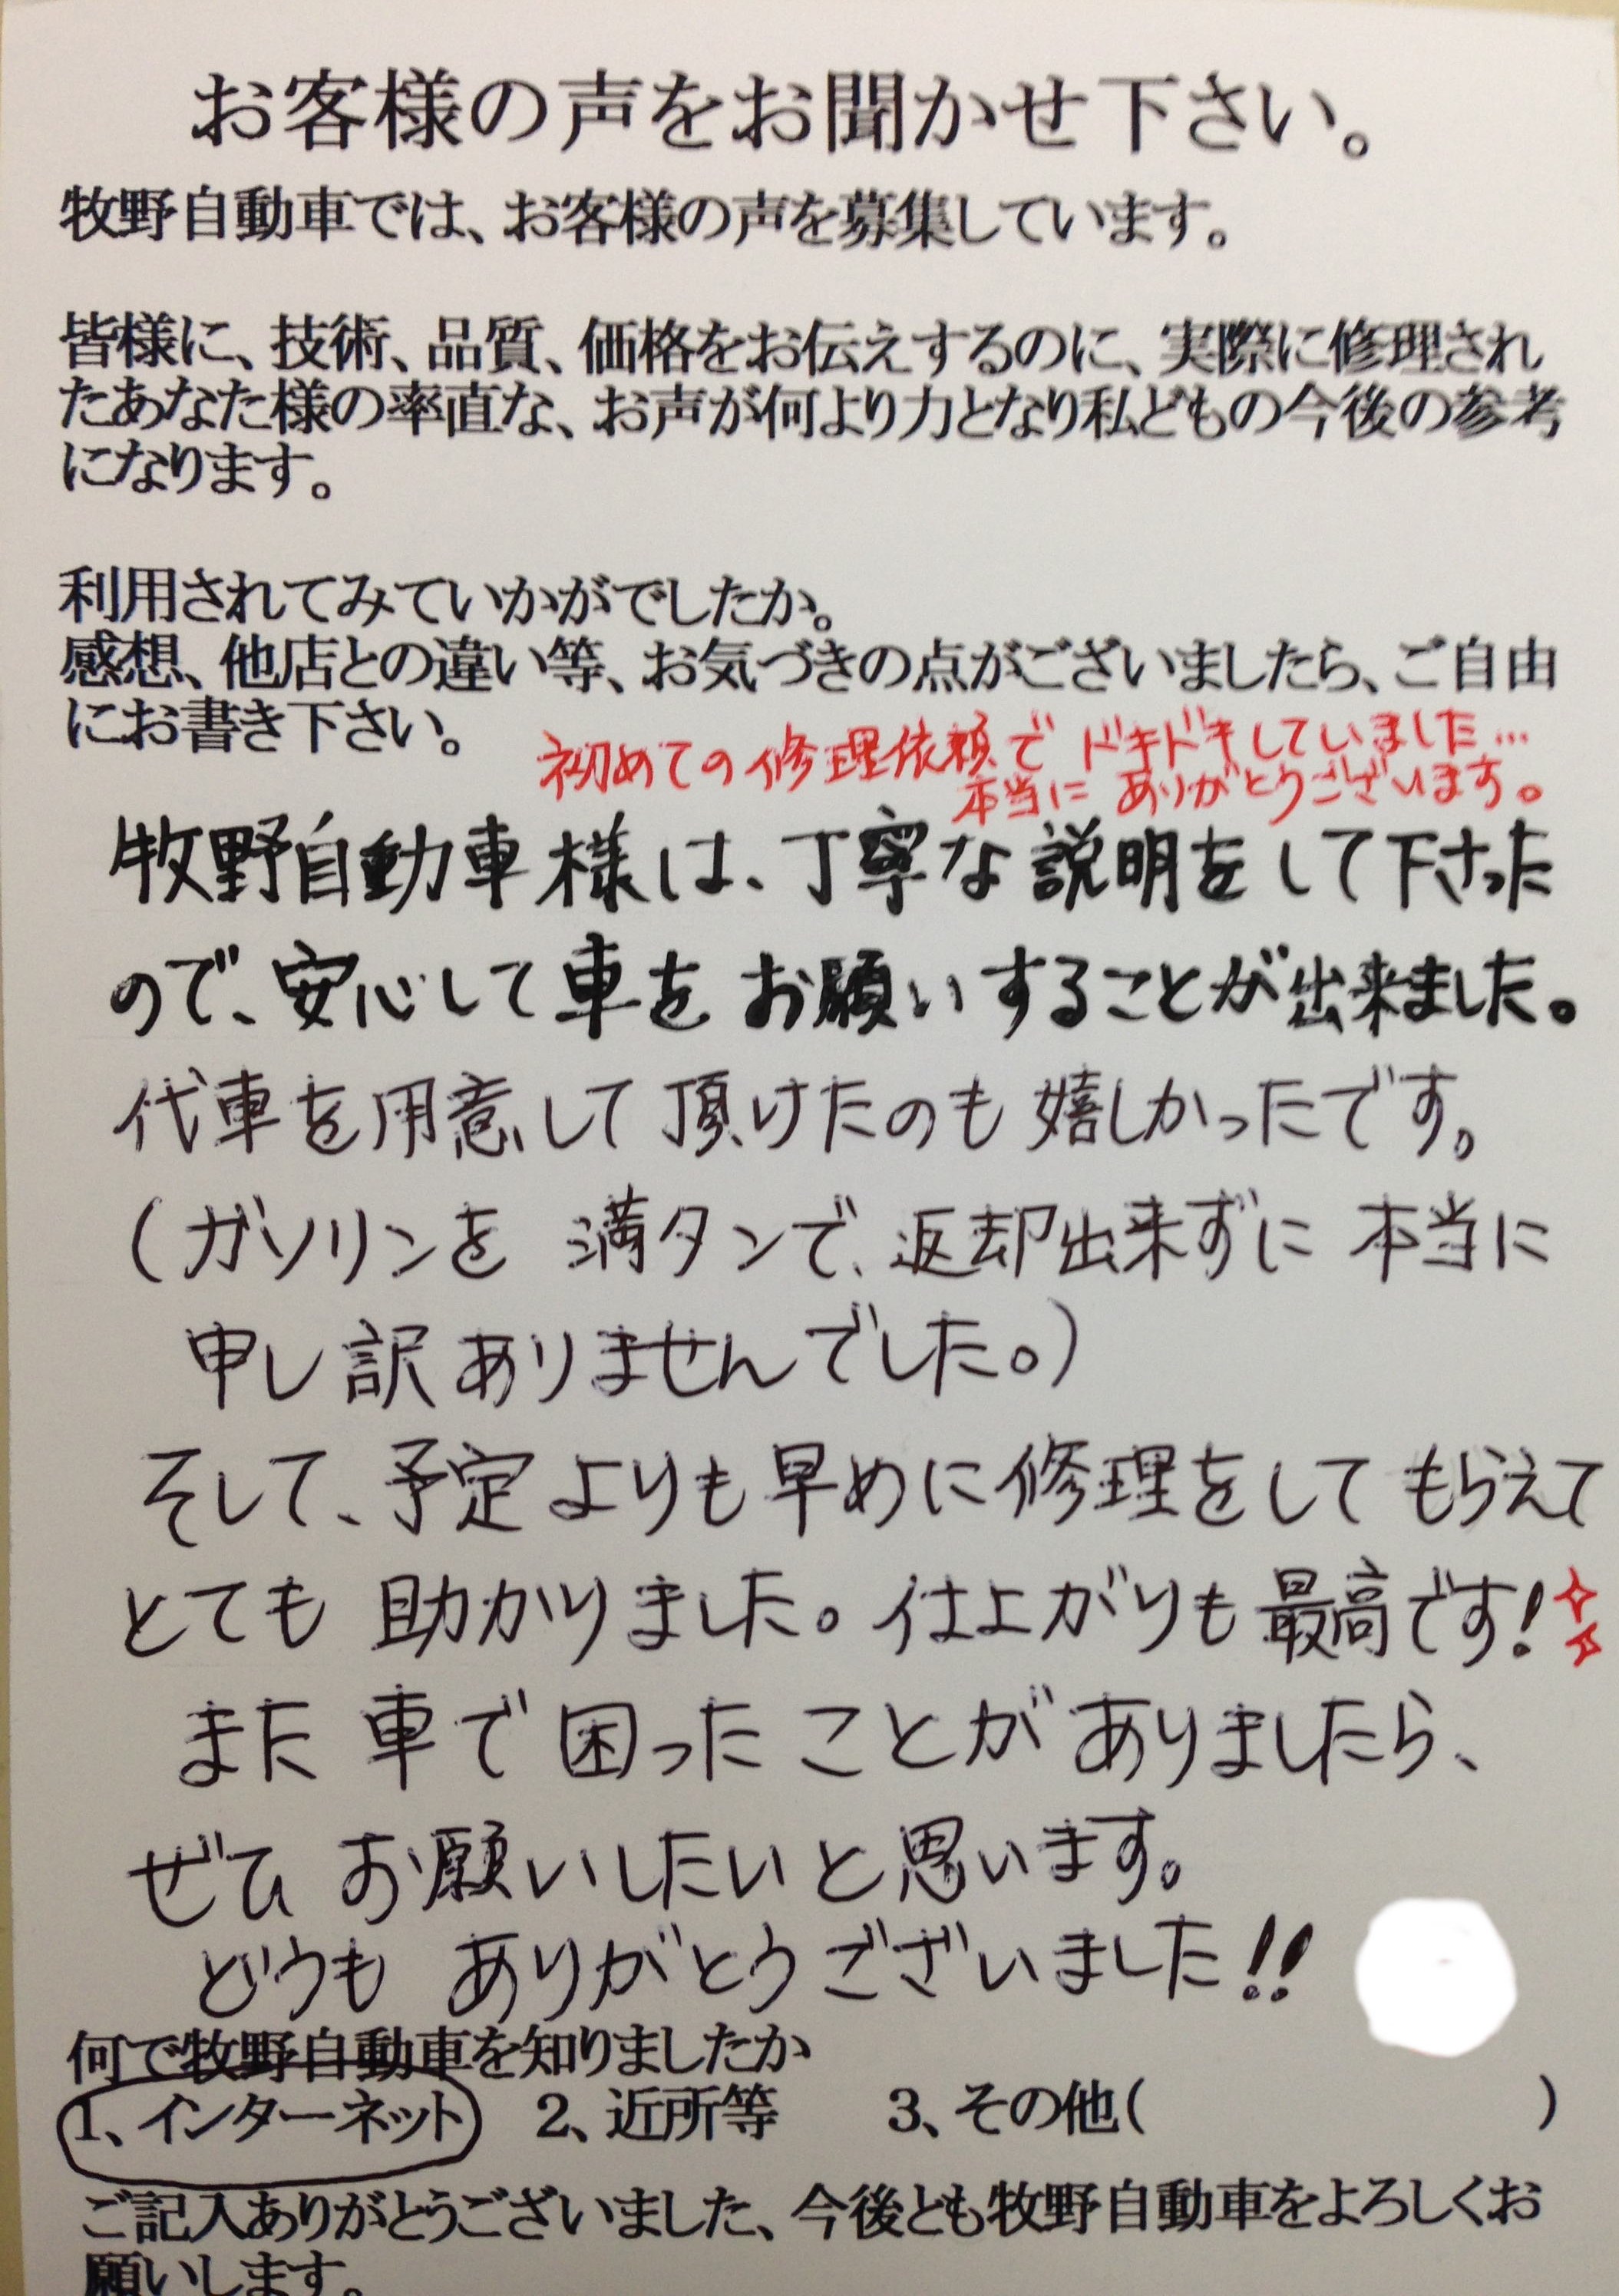 お客様の声をお聞かせ下さい。
牧野自動車では、お客様の声を募集しています。
皆様に、技術、品質、価格をお伝えするのに、実際に修理され
たあなた様の率直な、お声が何より力となり私どもの今後の参考
になります。
利用されてみていかがでしたか。
感想、他店との違い等、お気づきの点がございましたら、ご自由
にお書き下さい。
初めての修理依頼で ドキドキしていました…
本当に ありがとうございます。
牧野自動車様は、丁寧な説明をして下さった
ので、安心して車をお願いすることが出来ました。
代車を用意して頂けたのも嬉しかったです。
(ガソリンを 満タンで、返却出来ずに 本当に
申し訳ありませんでした。)
そして、予定よりも早めに修理をしてもらえて
とても 助かりました。仕上がりも最高です!
また車で困ったことがありましたら、
ぜひ お願いしたいと思います。
どうも ありがとうございました!!
何で牧野自動車を知りましたか
1、インターネット 2、近所等 3、その他( )
ご記入ありがとうございました、今後とも牧野自動車をよろしくお
願いします。